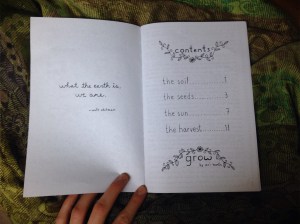 what the earth is,
we are.
contents
the soil 1
the seeds 3
the sun 7
the harvest 11
grow